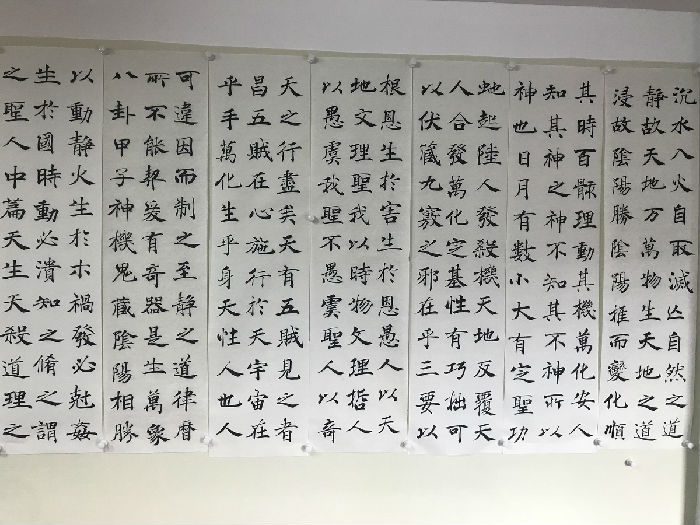 沉水入火自取滅亡自然之道
静故天地万萬物生天地之道
浸故陰陽勝陰陽推而變化順
其時百骸理動其機萬化安人
知其神之神不知其不神所以
神也日月有數小大有定聖功
虵起陸人發殺機天地反覆天
人合發萬化定基性有巧拙可
以伏藏九竅之邪在乎三要以
根恩生於害生於恩愚人以天
地文理聖我以時物文理哲人
以愚虞我聖不愚虞聖人以奇
天之行盡矣天有五賊見之者
昌五賊在心施行於天宇宙在
乎手萬化生乎身天性人也人
可違因而制之至静之道律曆
所不能契爰有奇器是生萬象
八卦甲子神機鬼藏陰陽相勝
以動静火生於木禍發必尅姦
生於國時動必潰知之脩之謂
之聖人中篇天生天殺道理之